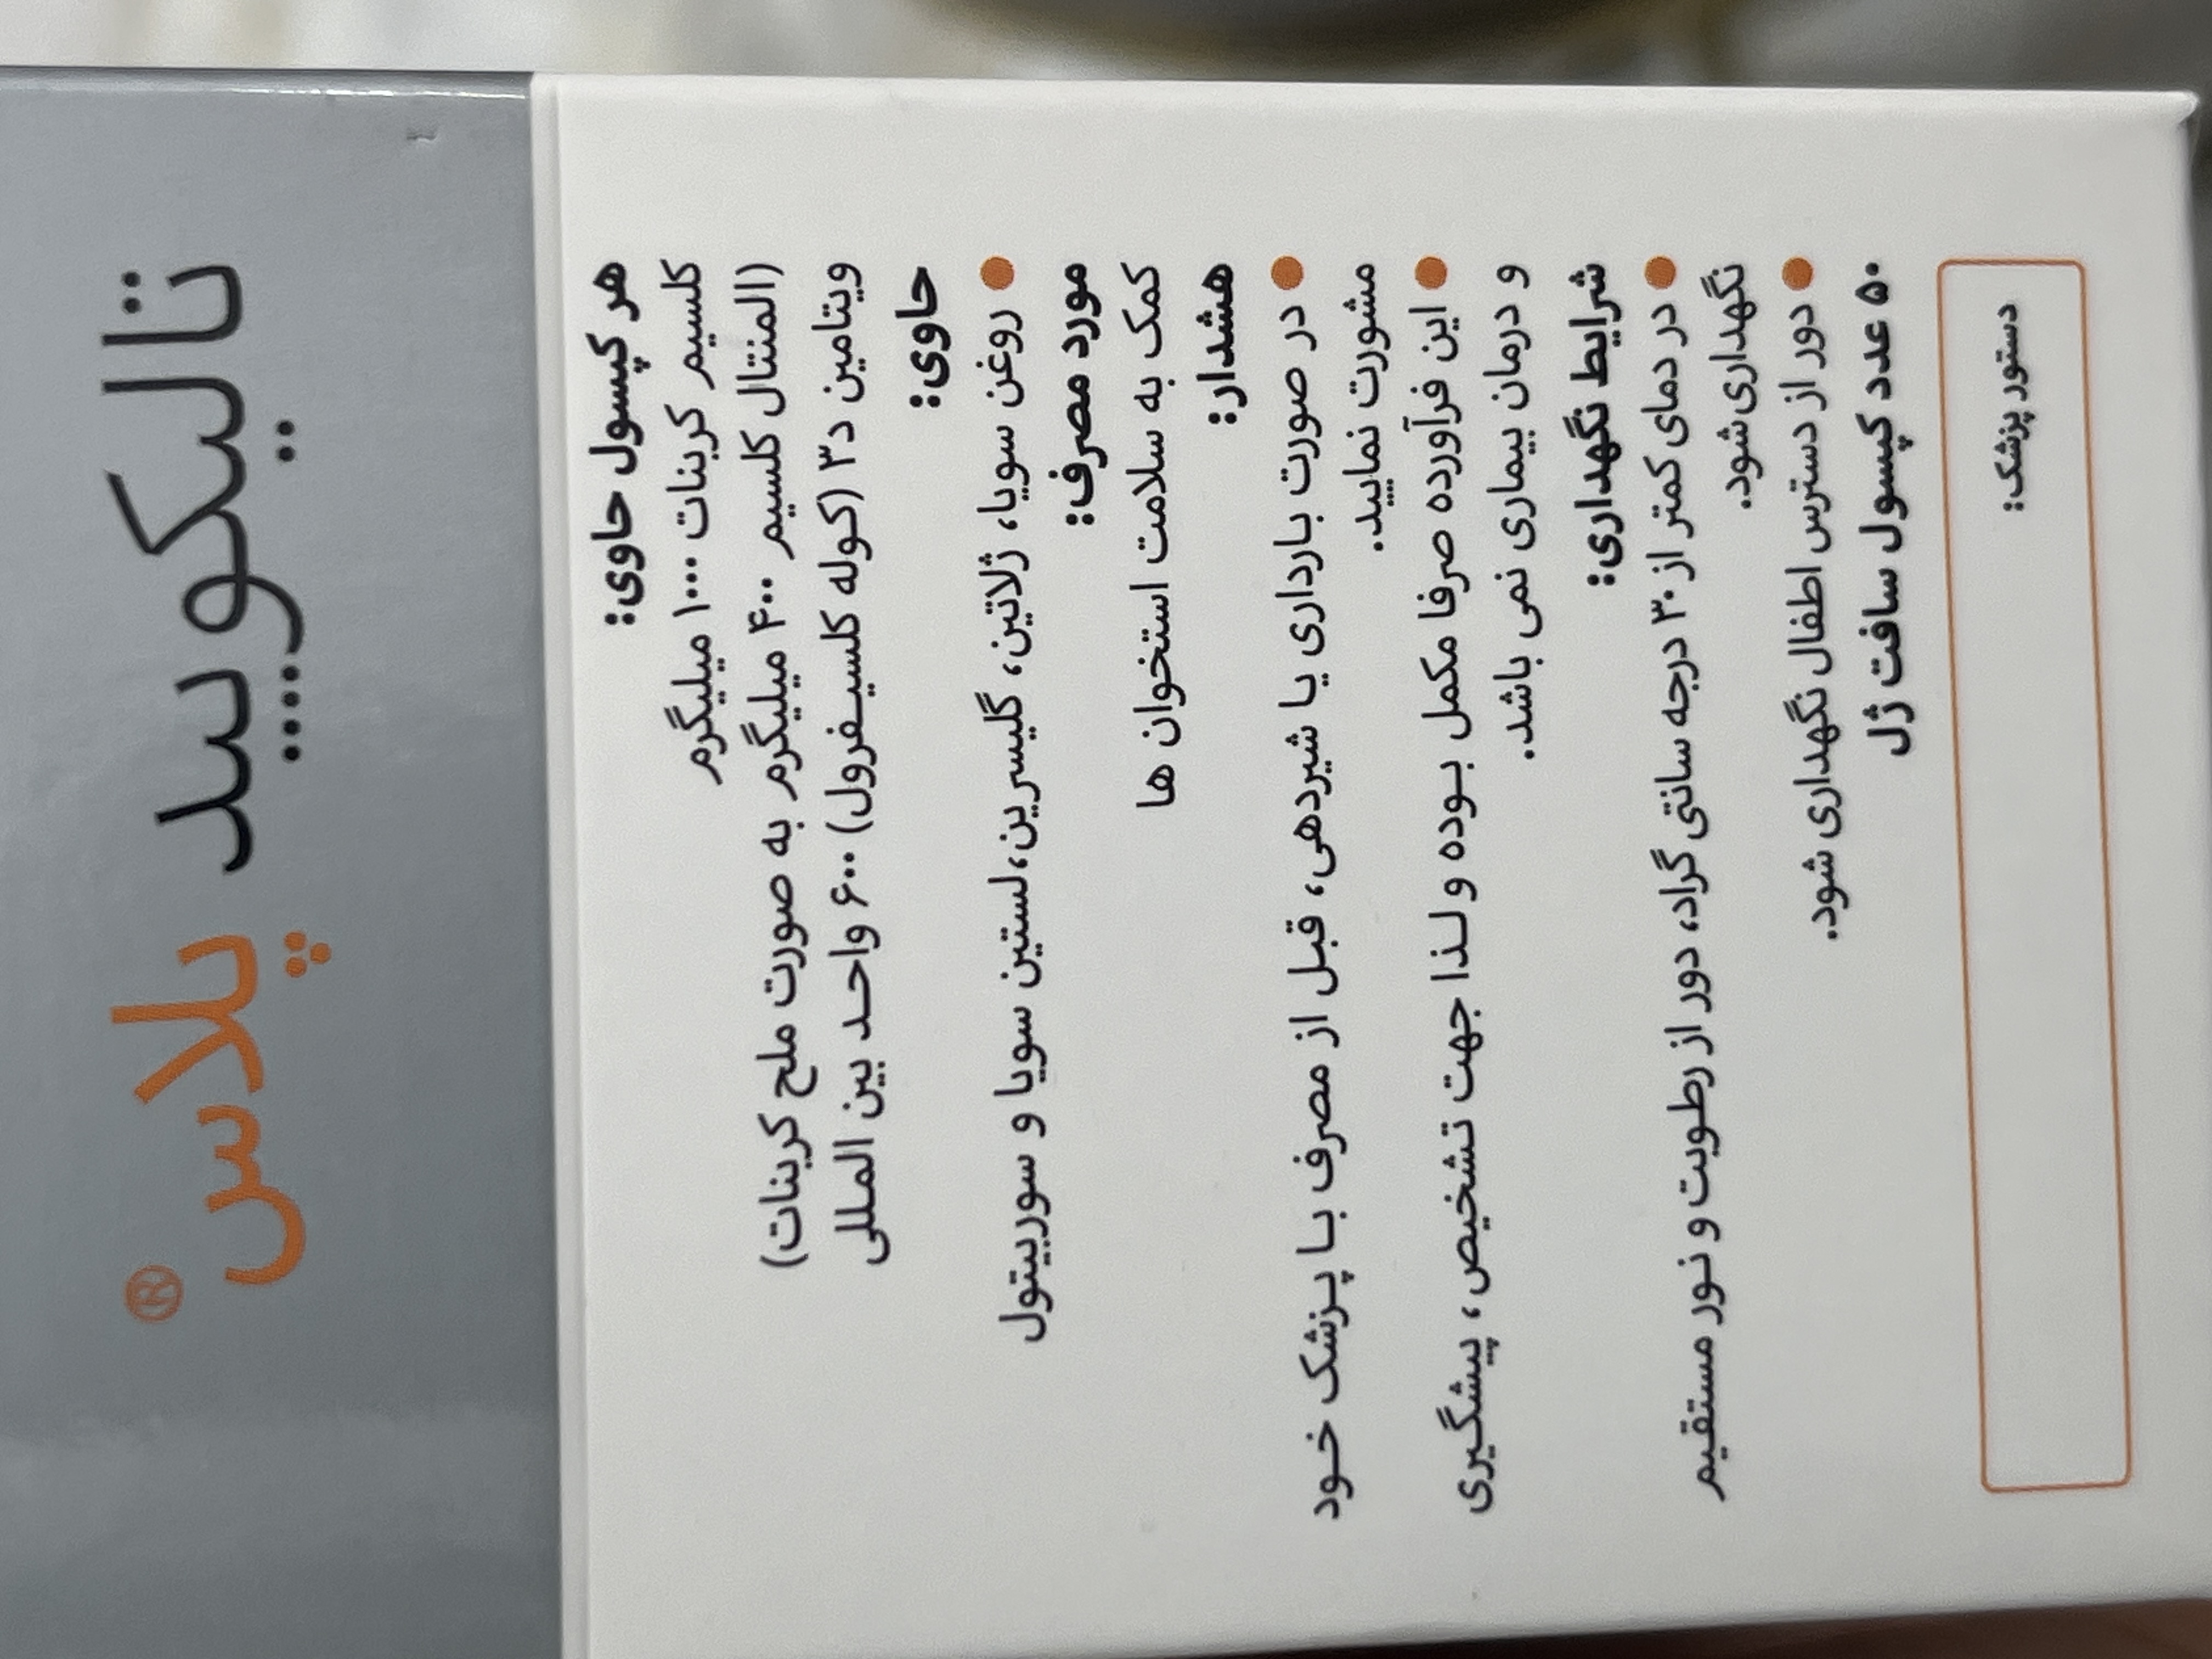 تالیکویید پلاس®
هر کپسول حاوی:
کلسیم کربنات ۱۰۰۰ میلیگرم
(المنتال کلسیم ۴۰۰ میلیگرم به صورت ملح کربنات)
ویتامین د۳ (کوله کلسیفرول) ۶۰۰ واحد بین المللی
حاوی:
● روغن سویا، ژلاتین، گلیسرین، لستین سویا و سوربیتول
مورد مصرف:
کمک به سلامت استخوان ها
هشدار:
● در صورت بارداری یا شیردهی، قبل از مصرف با پزشک خود
مشورت نمایید.
● این فرآورده صرفا مکمل بوده و لذا جهت تشخیص، پیشگیری
و درمان بیماری نمی باشد.
شرایط نگهداری:
● در دمای کمتر از ۳۰ درجه سانتی گراد، دور از رطوبت و نور مستقیم
نگهداری شود.
● دور از دسترس اطفال نگهداری شود.
۵۰ عدد کپسول سافت ژل
دستور پزشک: